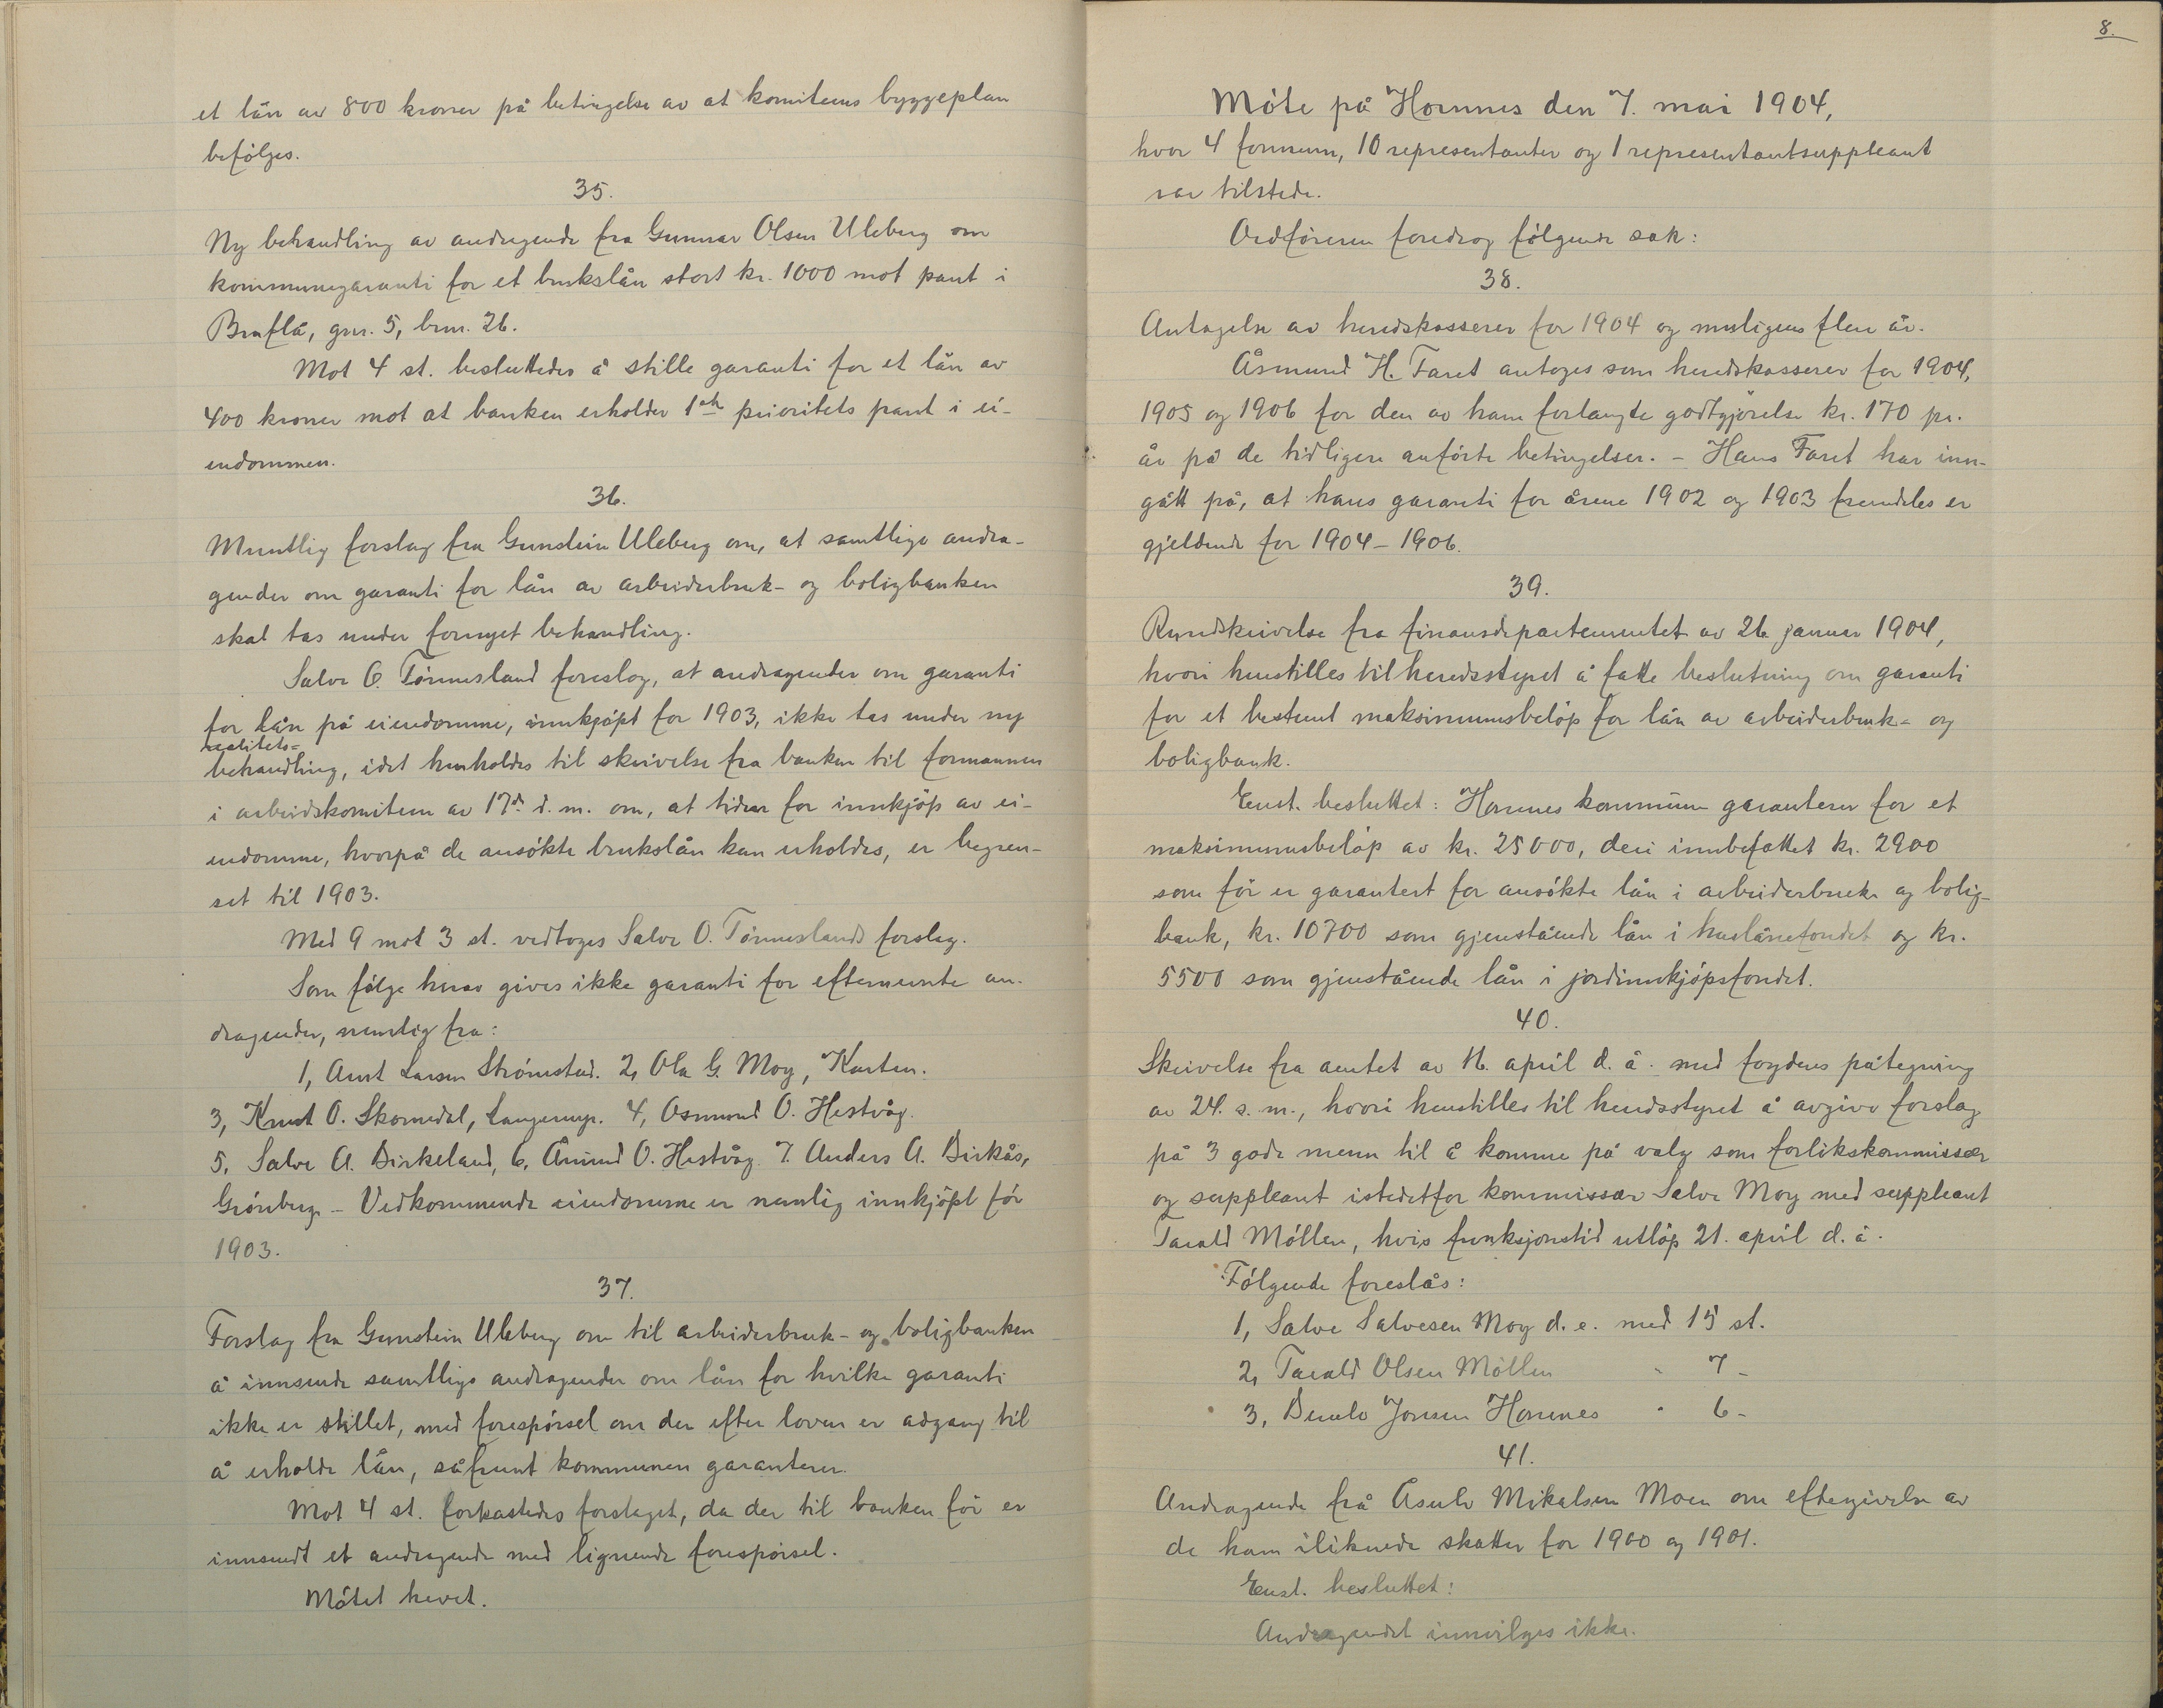 et lån av 800 kroner på betingelse av at komiteens byggeplan
befölges.
35.
Ny behandling av andragende fra Gunnar Olsen Uleberg om
kommunegaranti for et brukslån stort kr. 1000 mot pant i
Braflå, gnr. 5, brnr. 26.
Mot 4 st. besluttedes å stille garanti for et lån av
400 kroner mot at banken erholder 1ste prioritets pant i ei-
endommen.
36.
Muntlig forslag fra Gunstein Uleberg om, at samtlige andra-
gender om garanti for lån av arbeiderbruk- og boligbanken
skal tas under fornyet behandling.
Salve O. Tönnesland foreslog, at andragender om garanti
for lån på eiendomme, innkjöpt for 1903, ikke tas under ny
realitets-
behandling, idet henholdes til skrivelse fra banken til formannen
i arbeidskomiteen av 17de d. m. om, at tiden for innkjöp av ei-
endomme, hvorpå de ansökte brukslån kan erholdes, er begren-
set til 1903.
Med 9 mot 3 st. vedtoges Salve O. Tönneslands forslag.
Som fölge herav gives ikke garanti for efternevnte an-
dragender, nemlig fra:
1, Anst Larsen Strömstad. 2, Ola G. Moy, Karten.
3, Knut O. Skomedal, Langemyr. 4, Osmund O. Hestvåg.
5, Salve A. Birkeland, 6, Ånund O. Hestvåg. 7. Anders A. Birkås,
Grönberg. - Vedkommende eiendomme er nemlig innkjöpt för
1903.
37.
Forslag fra Gunstein Uleberg om til arbeiderbruk- og boligbanken
å innsende samtlige andragender om lån for hvilke garanti
ikke er stillet, med forespörsel om der efter loven er adgang til
å erholde lån, såfremt kommunen garanterer.
Mot 4 st. forkastedes forslaget, da der til banken för er
innsendt et andragende med lignende forespörsel.
Mötet hevet.
8.
Möte på Hornnes den 7. mai 1904,
hvor 4 formenn, 10 representanter og 1 representantsuppleant
var tilstede.
Ordföreren foredrog fölgende sak:
38.
Antagelse av heredskasserer for 1904 og muligens flere år.
Åsmund H. Faret antoges som heredskasserer for 1904,
1905 og 1906 for den av ham forlangte godtgjörelse kr. 170 pr.
år på de tidligere anförte betingelser. - Hans Faret har inn-
gått på, at hans garanti for årene 1902 og 1903 fremdeles er
gjeldende for 1904-1906.
39.
Rundskrivelse fra finansdepartementet av 26 januar 1904,
hvori henstilles til heredsstyret å fatte beslutning om garanti
for et bestemt maksimumsbelöp for lån av arbeiderbruk- og
boligbank.
Enst. besluttet: Hornnes kommune garanterer for et
maksimumsbelöp av kr. 25000, deri innbefattet kr. 2900
som för er garantert for ansökte lån i arbeiderbruk- og bolig-
bank, kr. 10700 som gjenstående lån i huslånefondet og kr.
5500 som gjenstående lån i jordinnkjöpsfondet.
40.
Skrivelse fra amtet av 16. april d. å. med fogdens påtegning
av 24. s. m., hvori henstilles til heredsstyret å avgive forslag
på 3 gode menn til å komme på valg som forlikskommissær
og suppleant istedetfor kommissær Salve Moy med suppleant
Tarald Möllen, hvis funksjonstid utlöp 21. april d. å.
Fölgende foreslås:
1, Salve Salvesen Moy d. e. med 15 st.
2, Tarald Olsen Möllen " 7 -
3, Berulv Jonsen Hornnes " 6 -
41.
Andragende frå Åsulv Mikalsen Moen om eftergivelse av
de ham iliknede skatter for 1900 og 1901.
Enst. besluttet:
Andragendet innvilges ikke.